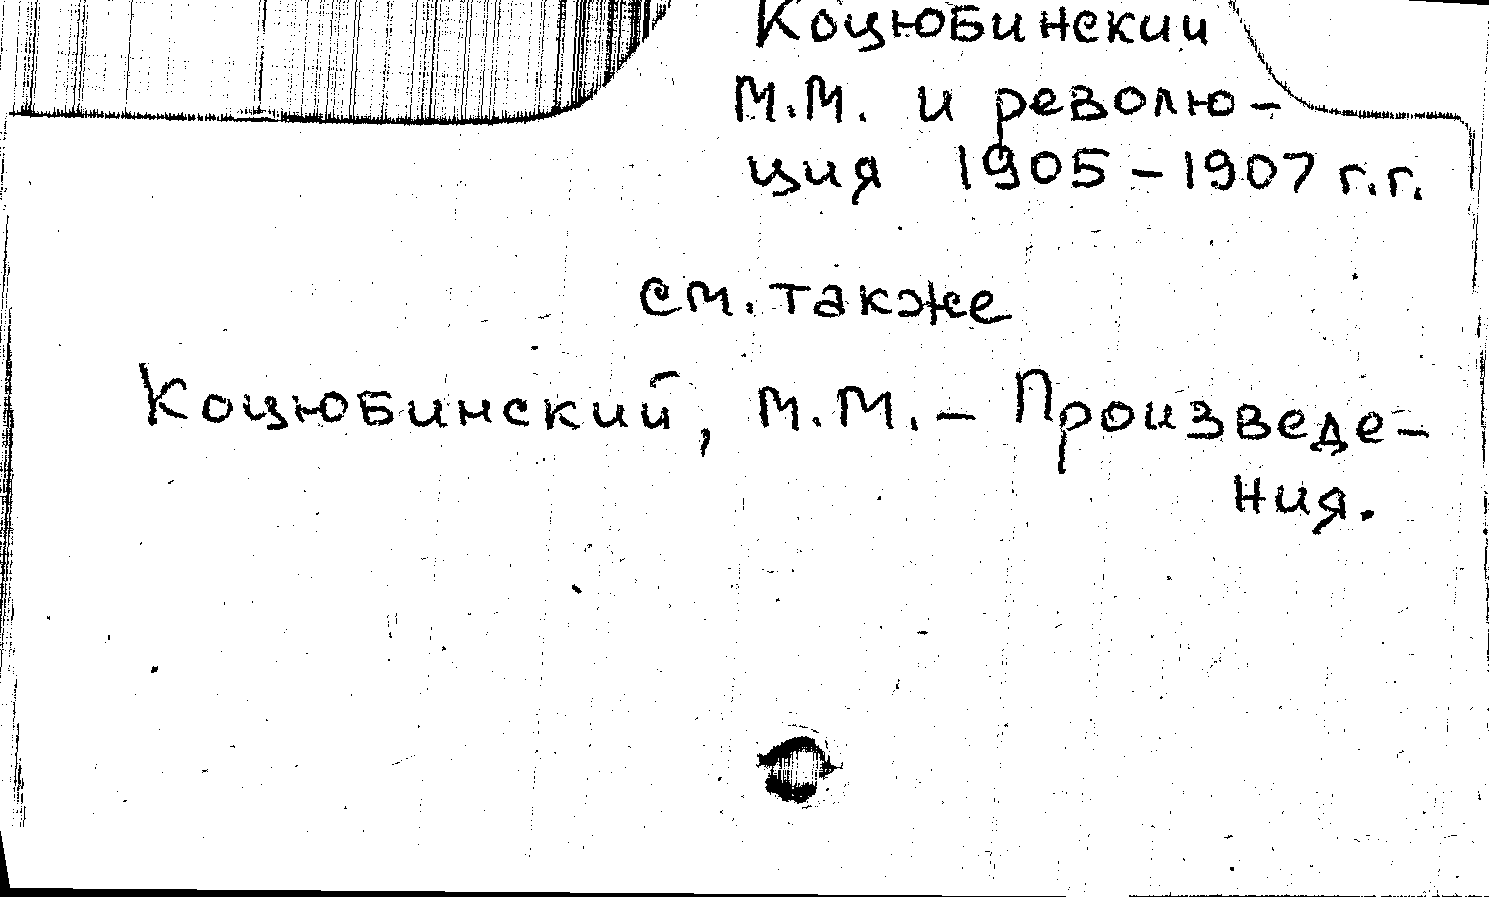 Коцюбинский
М.М. и револю-
ция 1905-1907 г.г.
см. также
Коцюбинский, М.М. - Произведе-
ния.